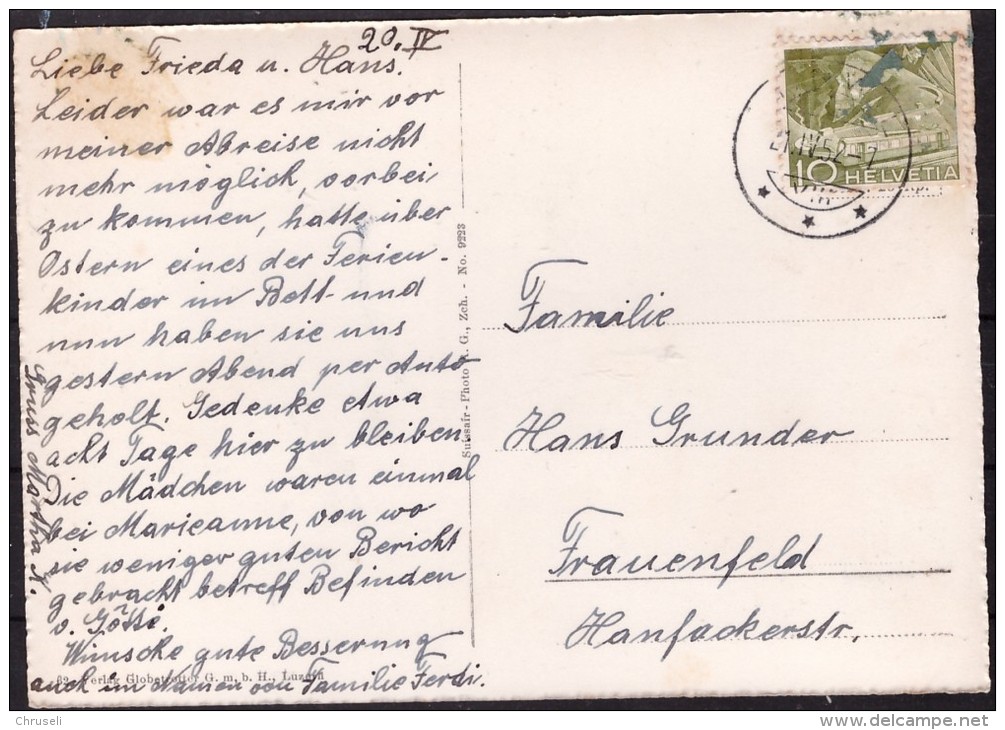 20. IV
Liebe Frieda u. Hans.
Leider war es mir vor
meiner Abreise nicht
mehr möglich, vorbei
zu kommen, hatte über
Ostern eines der Ferien-
kinder im Bett- und
nun haben sie uns
gestern Abend per Auto
geholt. Gedenke etwa
acht Tage hier zu bleiben
Die Mädchen waren einmal
bei Marieanne, von wo
sie weniger guten Bericht
gebracht betreff Befinden
v. Götti.
Wünsche gute Besserung
auch im Namen von Familie Ferdi.
Gruss Martha N.
62 Verlag Globetrotter G. m. b. H., Luzern
Suissair-Photo A. G., Zch. - No. 9223
IV 52-7
10 HELVETIA
Familie
Hans Grunder
Frauenfeld
Hanfackerstr.
Chruseli
www.delcampe.net